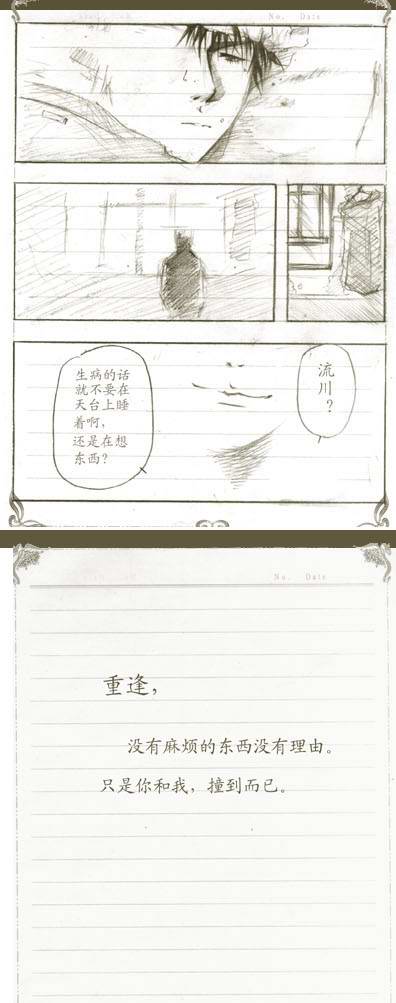 No. Date
流
川
？
生病的话
就不要在
天台上睡
着啊，
还是在想
东西？
No. Date
重逢，
没有麻烦的东西没有理由。
只是你和我，撞到而已。